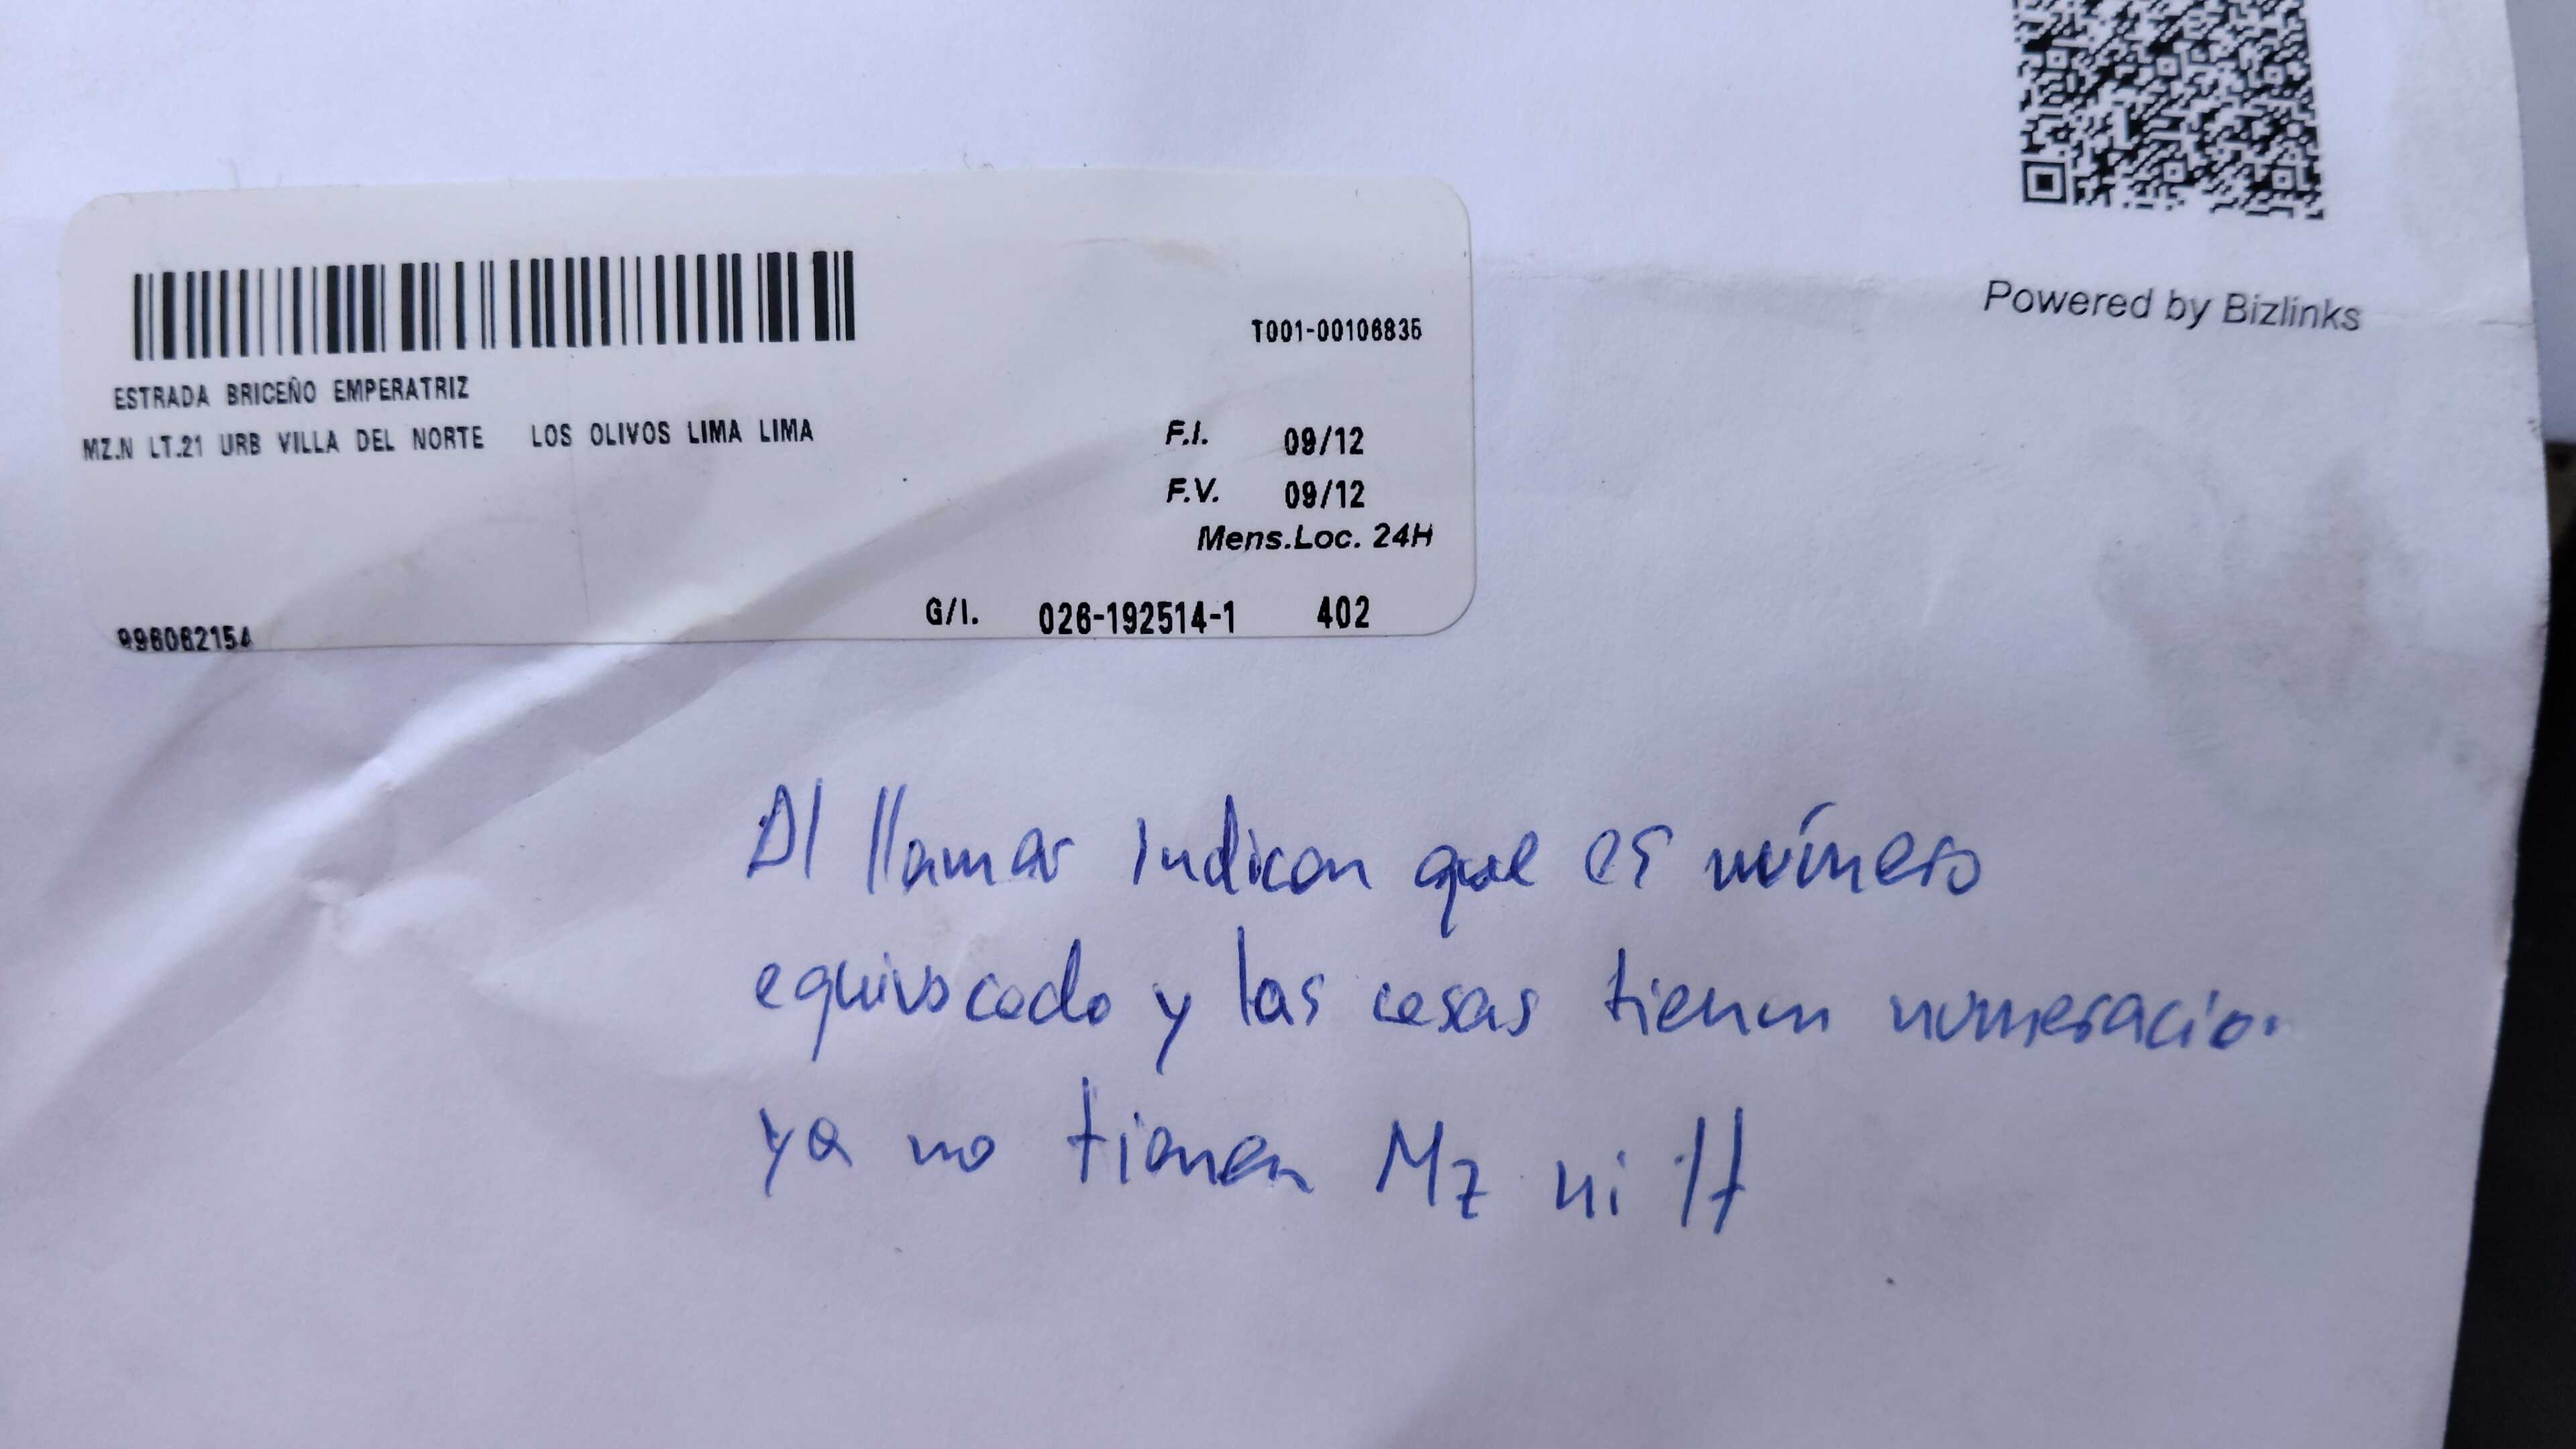 Powered by Bizlinks
T001-00106835
ESTRADA BRICEÑO EMPERATRIZ
MZ.N LT.21 URB VILLA DEL NORTE LOS OLIVOS LIMA LIMA
F.I. 09/12
F.V. 09/12
Mens.Loc. 24H
G/I. 026-192514-1 402
996062154
Al llamar indican que es número
equivocado y las casas tienen numeracio.
ya no tienen Mz ni lt